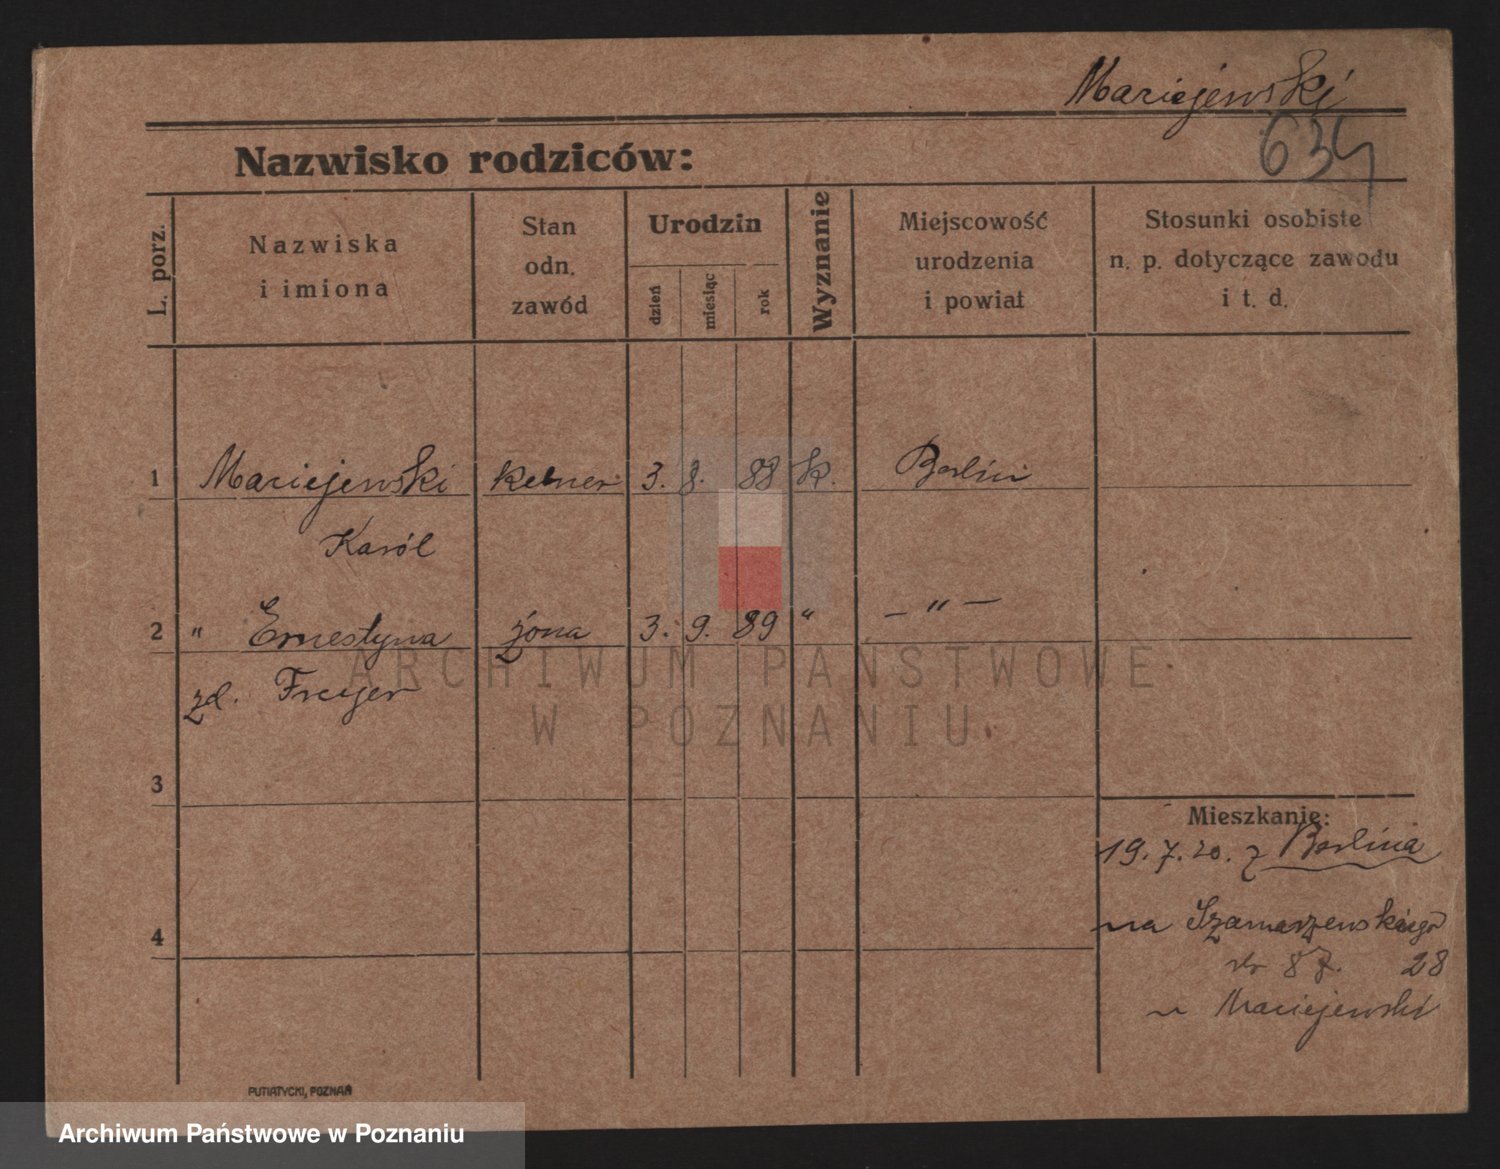 Maciejewski
634
Nazwisko rodziców:
L. porz.
Nazwiska
i imiona
Stan
odn.
zawód
Urodzin
dzień
miesiąc
rok
Wyznanie
Miejscowość
urodzenia
i powiat
Stosunki osobiste
n. p. dotyczące zawodu
i t. d.
1 Maciejewski kelner 3. 8. 88 k. Berlin
Karól
2 " Ernestyna żona 3. 9. 89 " — " —
zd. Freyer
3
Mieszkanie:
19. 7. 20. z Berlina
na Szamarzewskiego
28
4
u Maciejewski
PUTIATYCKI, POZNAŃ
ARCHIWUM PAŃSTWOWE
W POZNANIU
Archiwum Państwowe w Poznaniu